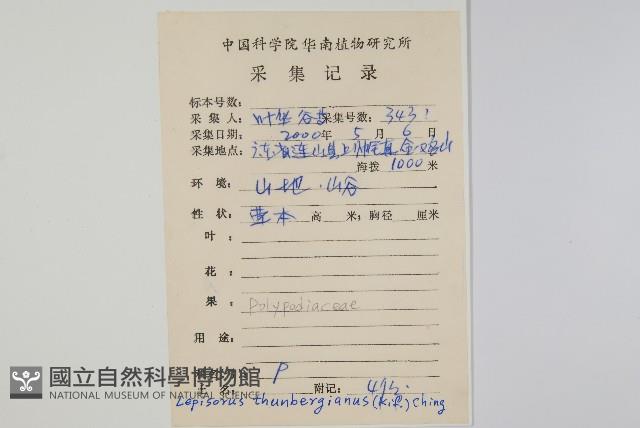 中国科学院华南植物研究所
采集记录
标本号数:
采集人: 叶华谷 采集号数: 3431
采集日期: 2000年 5月 6日
采集地点: 东省连山县上帅镇
海拔 1000 米
环境: 山地·山谷
性状: 草本 高 米; 胸径 厘米
叶:
花:
果: Polypodiaceae
用途:
P
附记:
Lepisorus thunbergianus (Kaulf.) Ching
國立自然科學博物館
NATIONAL MUSEUM OF NATURAL SCIENCE